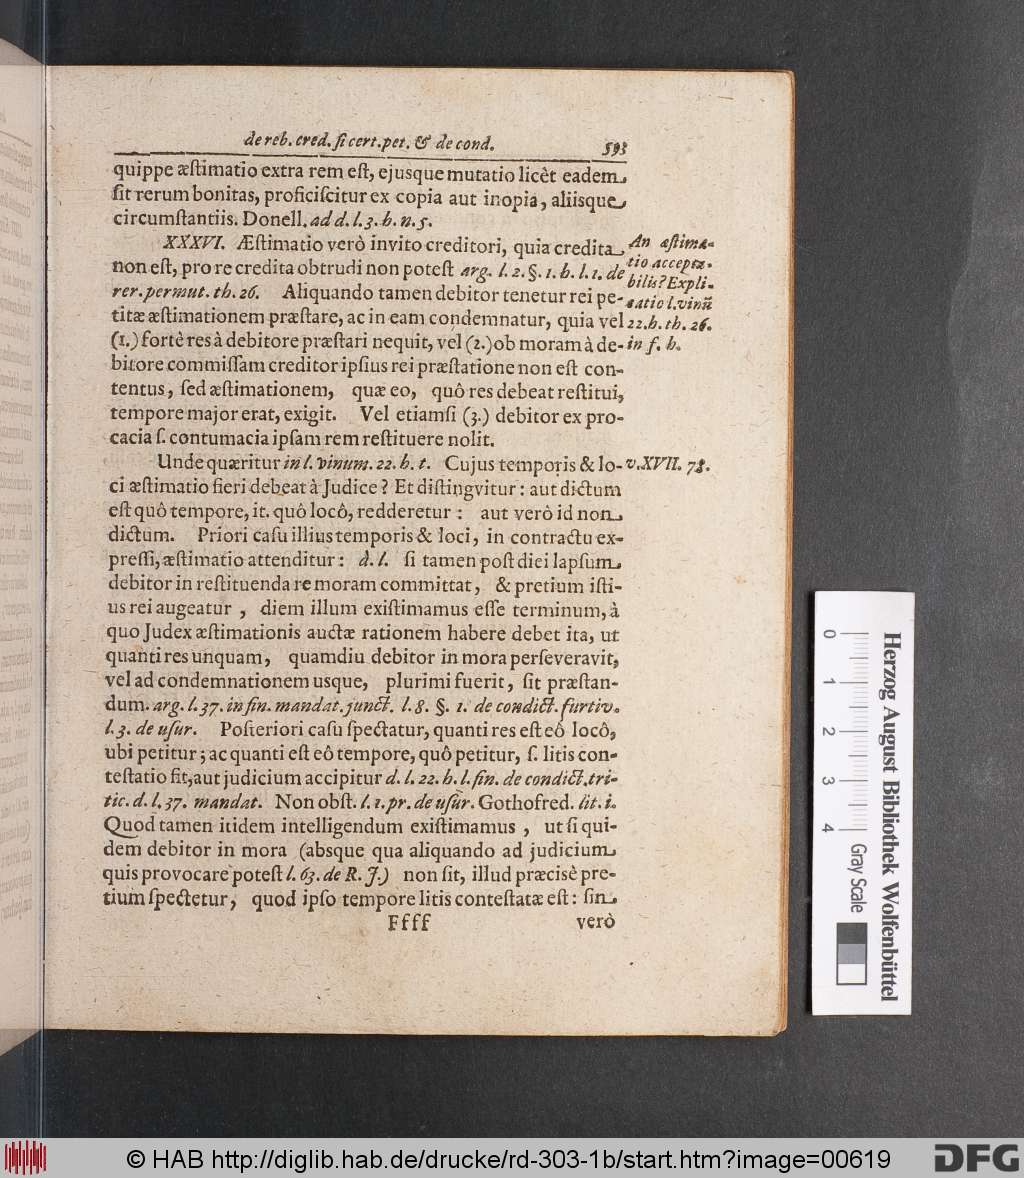 de reb. cred. ſi cert. pet. & de cond. 593
quippe æſtimatio extra rem eſt, ejusque mutatio licèt eadem
ſit rerum bonitas, proficiſcitur ex copia aut inopia, aliisque
circumſtantiis. Donell. ad d. l. 3. h. n. 5.
XXXVI. Æſtimatio verò invito creditori, quia credita
non eſt, pro re credita obtrudi non poteſt arg. l. 2. §. 1. h. l. 1. de
rer. permut. th. 26. Aliquando tamen debitor tenetur rei pe-
titæ æſtimationem præſtare, ac in eam condemnatur, quia vel
(1.) fortè res à debitore præſtari nequit, vel (2.) ob moram à de-
bitore commiſſam creditor ipſius rei præſtatione non eſt con-
tentus, ſed æſtimationem, quæ eo, quô res debeat reſtitui,
tempore major erat, exigit. Vel etiamſi (3.) debitor ex pro-
cacia ſ. contumacia ipſam rem reſtituere nolit.
An æſtima-
tio accepta-
bilis? Expli-
catio l. vinū
22. h. th. 26.
in f. h.
Unde quæritur in l. vinum. 22. h. t. Cujus temporis & lo-
ci æſtimatio fieri debeat à Judice? Et diſtingvitur: aut dictum
eſt quô tempore, it. quô locô, redderetur: aut verò id non
dictum. Priori caſu illius temporis & loci, in contractu ex-
preſſi, æſtimatio attenditur: d. l. ſi tamen poſt diei lapſum
debitor in reſtituenda re moram committat, & pretium iſti-
us rei augeatur, diem illum exiſtimamus eſſe terminum, à
quo Judex æſtimationis auctæ rationem habere debet ita, ut
quanti res unquam, quamdiu debitor in mora perſeveravit,
vel ad condemnationem usque, plurimi fuerit, ſit præſtan-
dum. arg. l. 37. in fin. mandat. junct. l. 8. §. 1. de condict. furtiv.
l. 3. de uſur. Poſteriori caſu ſpectatur, quanti res eſt eô locô,
ubi petitur; ac quanti eſt eô tempore, quô petitur, ſ. litis con-
teſtatio fit, aut judicium accipitur d. l. 22. h. l. fin. de condict. tri-
tic. d. l. 37. mandat. Non obſt. l. 1. pr. de uſur. Gothofred. lit. i.
Quod tamen itidem intelligendum exiſtimamus, ut ſi qui-
dem debitor in mora (absque qua aliquando ad judicium
quis provocare poteſt l. 63. de R. J.) non ſit, illud præcisè pre-
tium ſpectetur, quod ipſo tempore litis conteſtatæ eſt: ſin
v. XVII. 78.
Ffff verò
0 1 2 3 4
Gray Scale
Herzog August Bibliothek Wolfenbüttel
© HAB http://diglib.hab.de/drucke/rd-303-1b/start.htm?image=00619
DFG